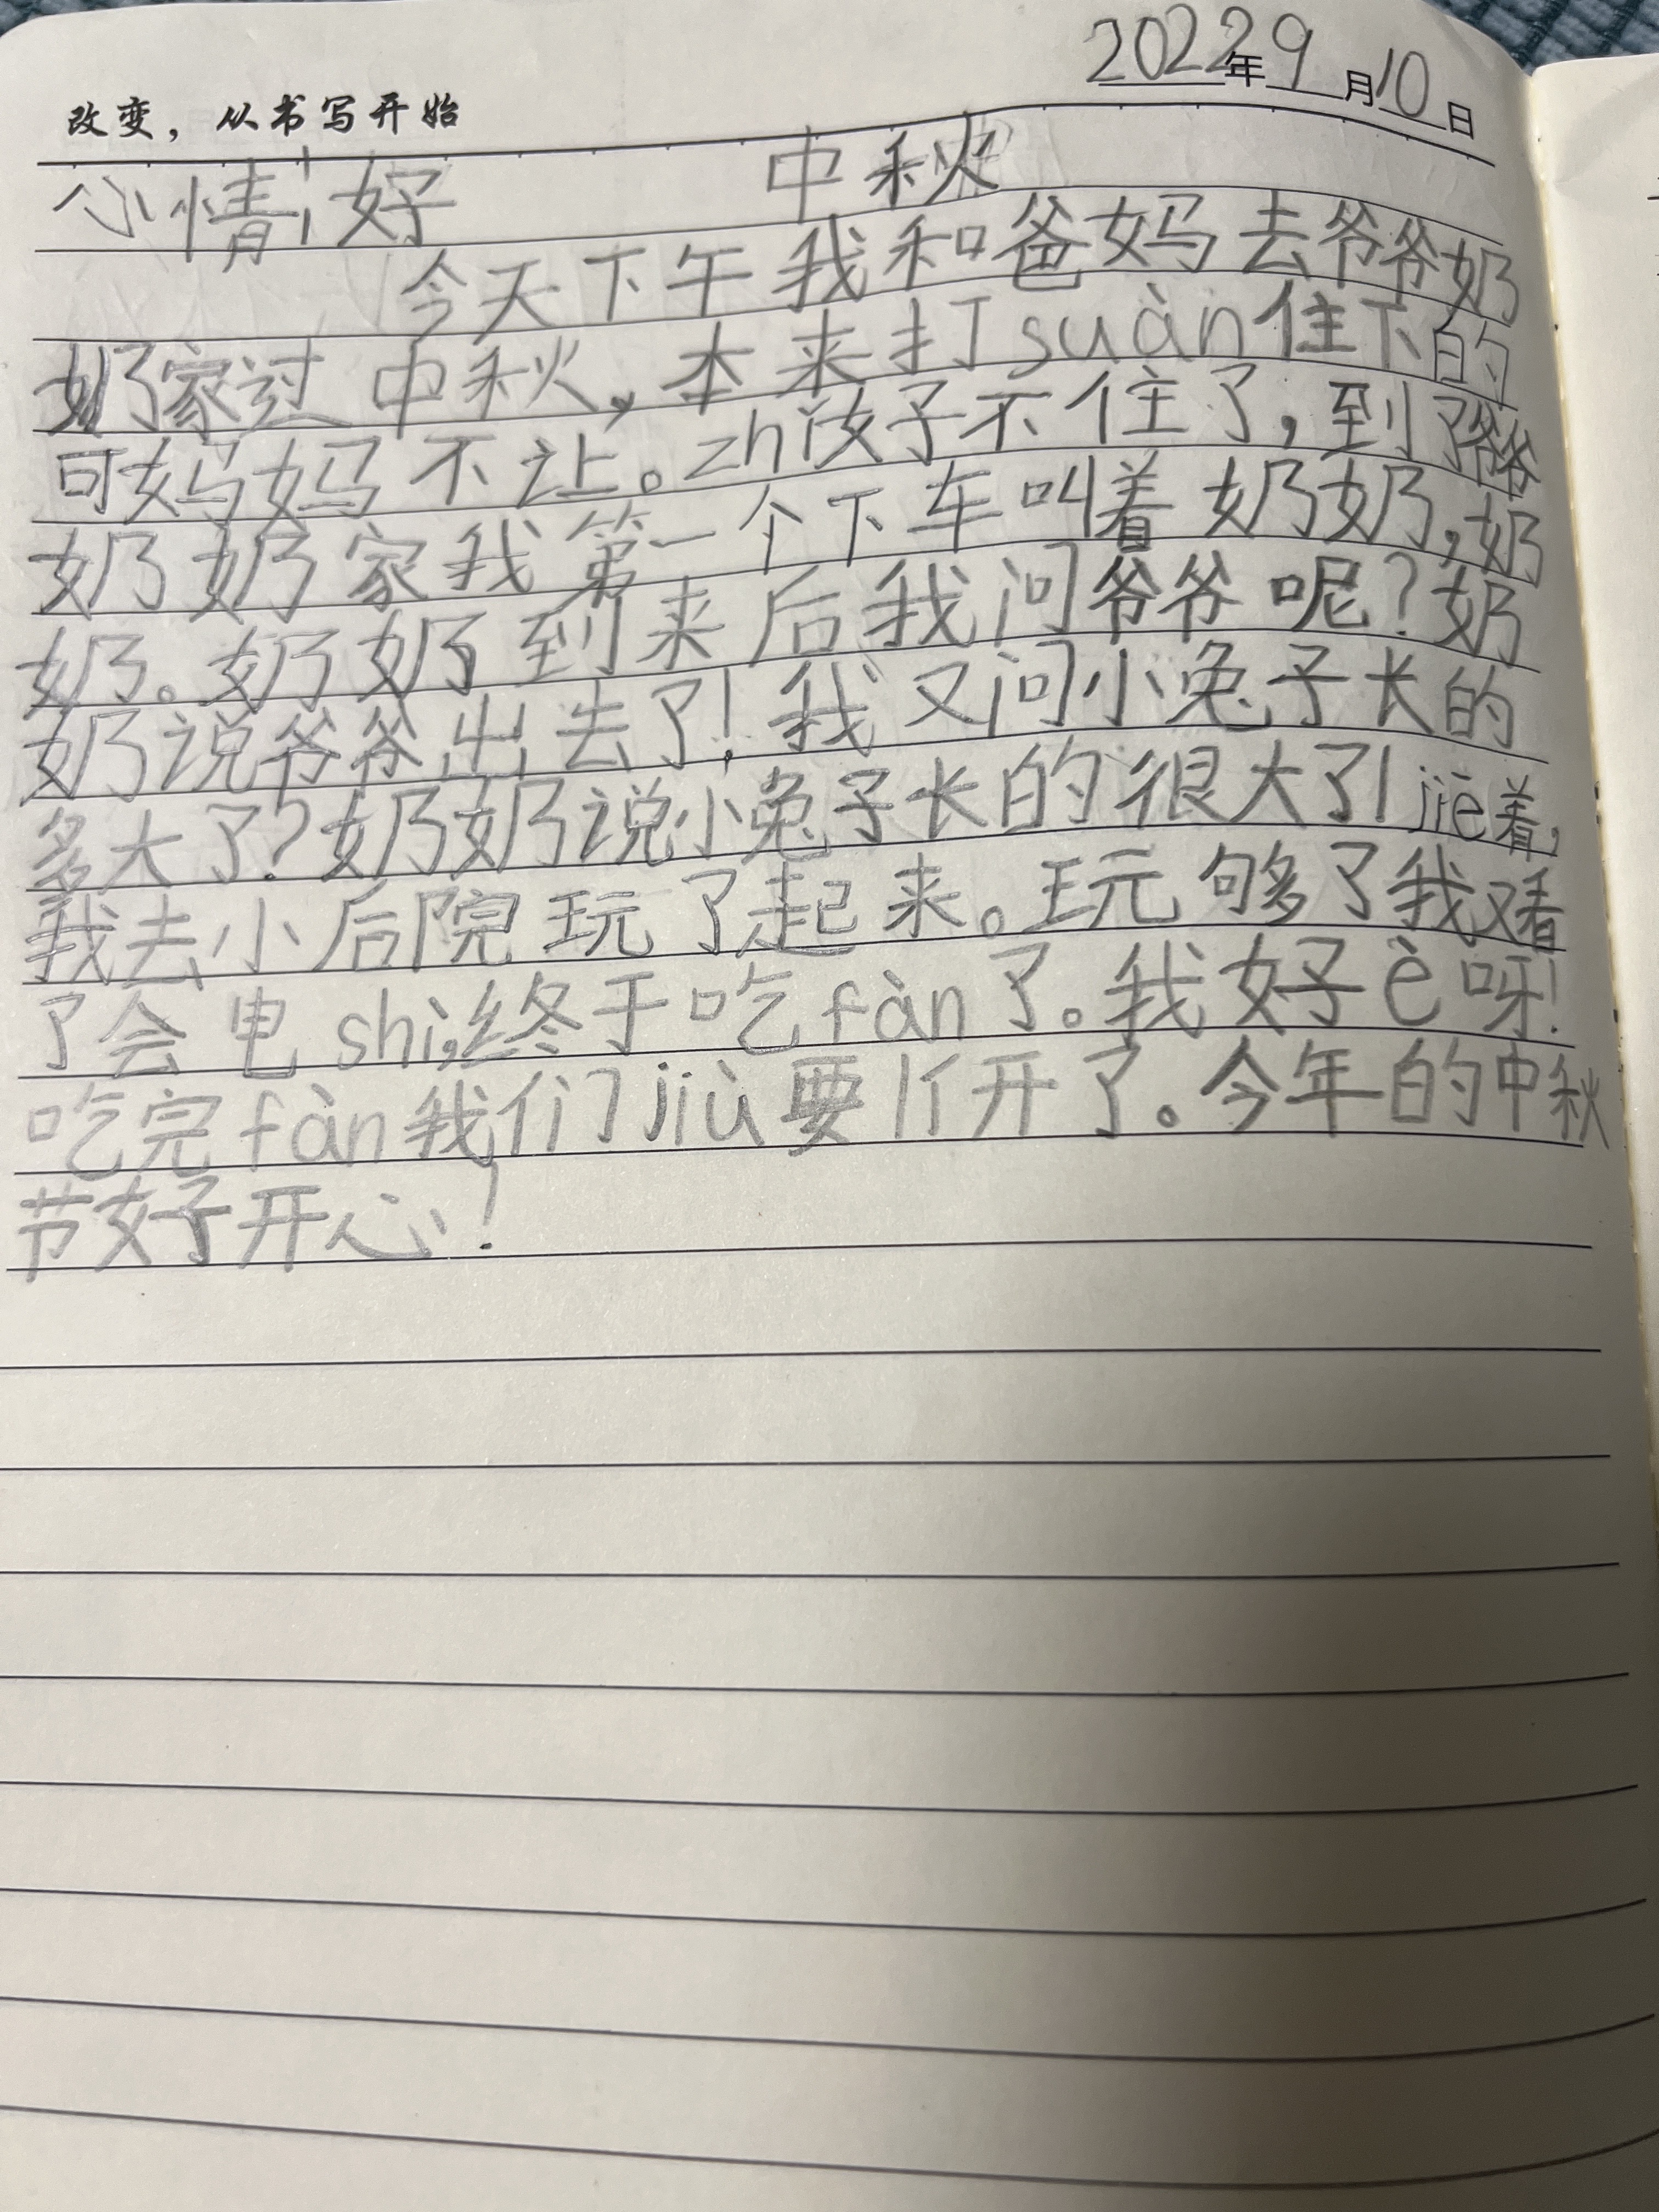 2022年9月10日
改变，从书写开始
心情：好 中秋
今天下午我和爸妈去爷爷奶
奶家过中秋，本来打suàn住下的
可妈妈不让。zhǐ好不住了，到了爷爷
奶奶家我第一个下车叫着奶奶，奶
奶。奶奶到来后我问爷爷呢？奶
奶说爷爷出去了！我又问小兔子长的
多大了？奶奶说小兔子长的很大了！jiē着，
我去小后院玩了起来。玩够了我又看
了会电shì，终于吃fàn了。我好è呀！
吃完fàn我们jiù要开了。今年的中秋
节好开心！